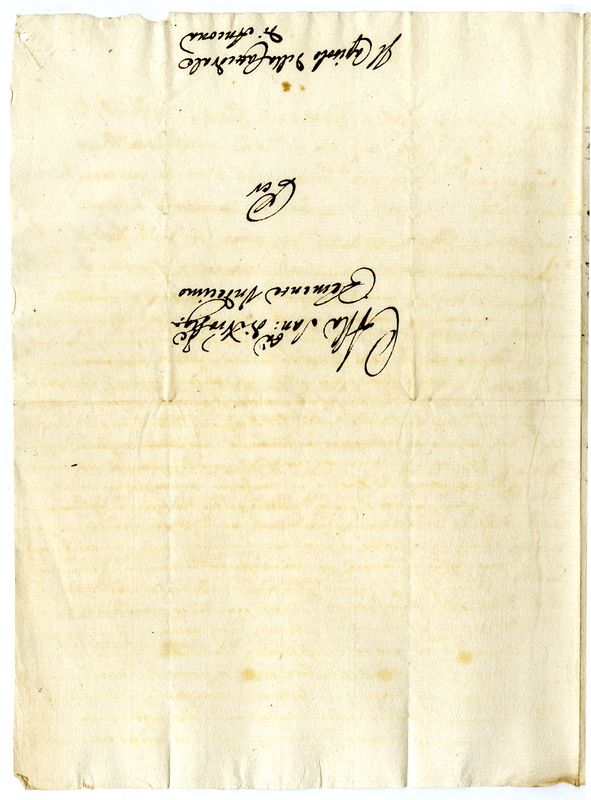 Alla San: di Nro Sig:re
Clemente Undecimo
Per
Il Capitolo della Catedrale
di Ancona